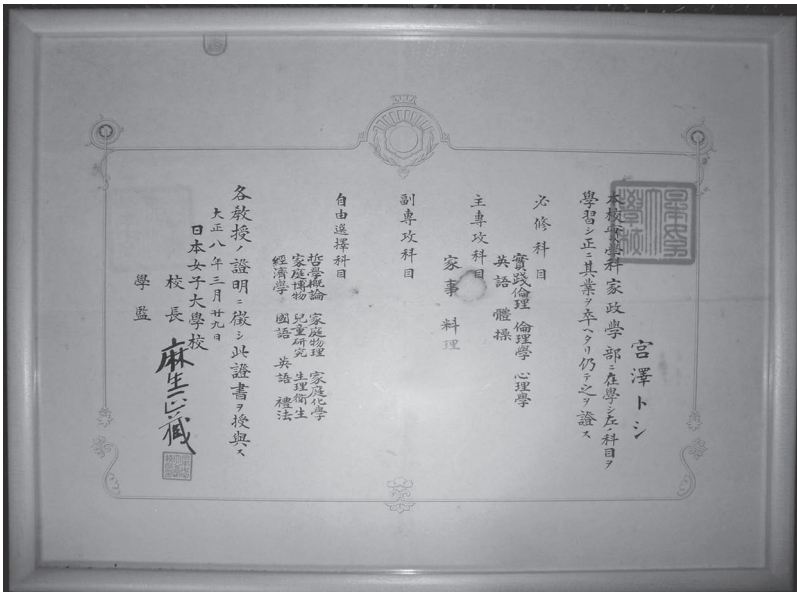 宮澤トシ
本校大學科家政學部ニ在學シ左ノ科目ヲ
學習シ正ニ其業ヲ卒ヘタリ仍テ之ヲ證ス
必修科目
實踐倫理 倫理學 心理學
英語 體操
主專攻科目
家事 料理
副專攻科目
自由選擇科目
哲學概論 家庭物理 家庭化學
家庭博物 兒童研究 生理衞生
經濟學 國語 英語 禮法
各教授ノ證明ニ徴シ此證書ヲ授與ス
大正八年三月廿九日
日本女子大學校
校長
學監
麻生正藏